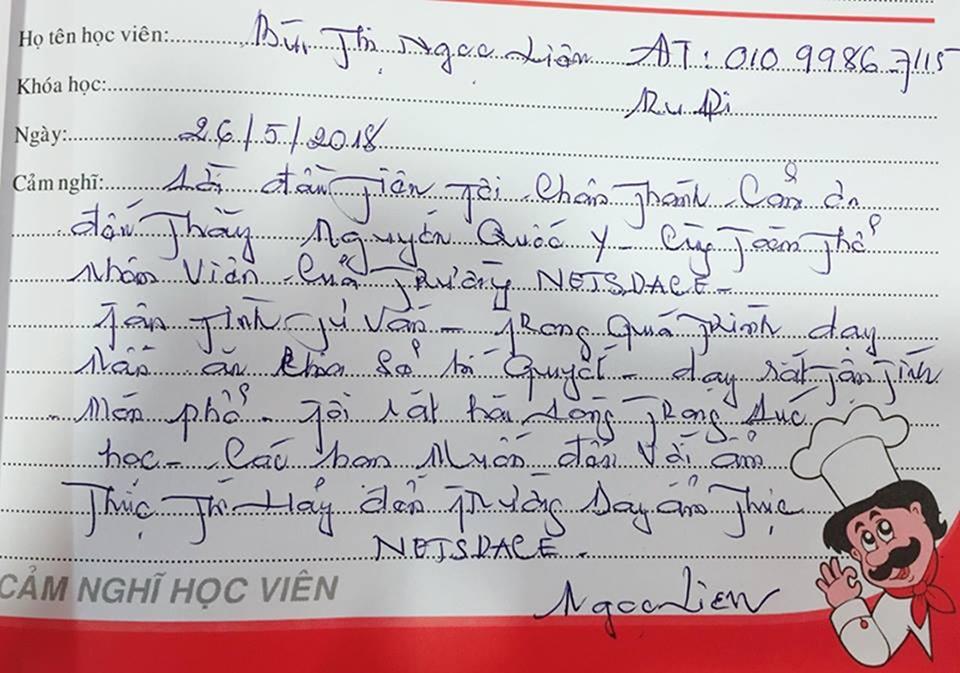 Họ tên học viên: Bùi Thị Ngọc Liên ĐT: 010 9986 7115
Khóa học: Mu Di
Ngày: 26/5/2018
Cảm nghĩ: Lời đầu tiên tôi Chân Thành Cảm ơn
đến Thầy Nguyễn Quốc Y - Cùng Toàn Thể
Nhân Viên Của Trường NETSDACE -
Tận Tình Tư Vấn - Trong Quá Trình dạy
Nấu ăn chia Sẻ bí Quyết - dạy rất Tận Tình
Món phở - Tôi rất hài Lòng Trong Lúc
học - Các bạn Muốn đến Với ẩm
Thực Thì Hãy đến Trường Dạy ẩm Thực
NETSDACE -
CẢM NGHĨ HỌC VIÊN
Ngọc Liên